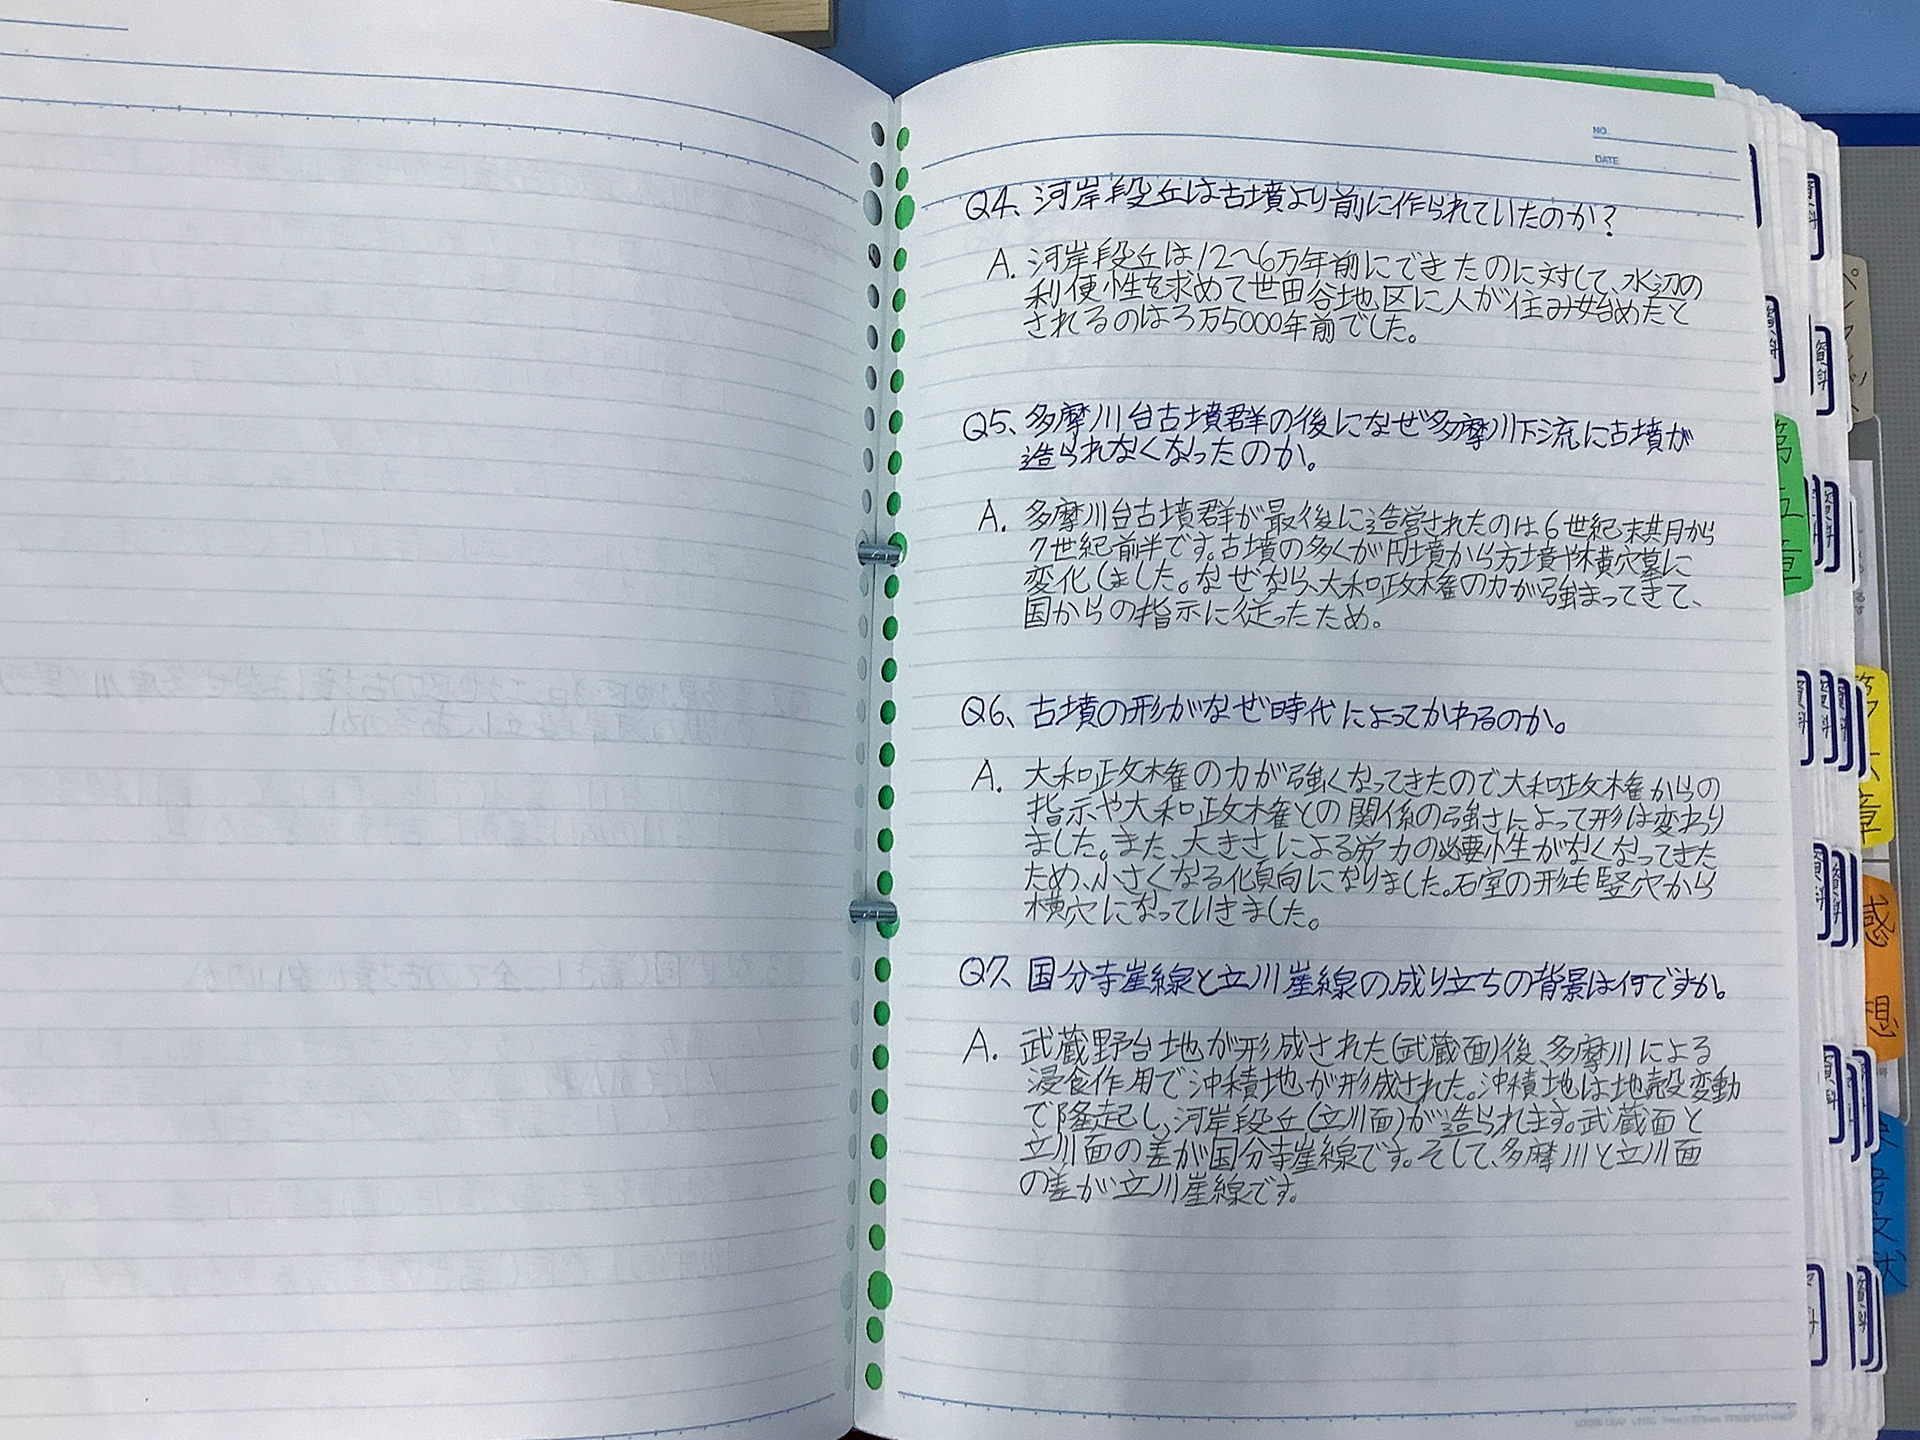 NO.
DATE
Q4、河岸段丘は古墳より前に作られていたのか？
A. 河岸段丘は12〜6万年前にできたのに対して、水辺の
利便性を求めて世田谷地区に人が住み始めたと
されるのは3万5000年前でした。
Q5、多摩川台古墳群の後になぜ多摩川下流に古墳が
造られなくなったのか。
A. 多摩川台古墳群が最後に造営されたのは6世紀末期から
7世紀前半です。古墳の多くが円墳から方墳や横穴墓に
変化しました。なぜなら、大和政権の力が強まってきて、
国からの指示に従ったため。
Q6、古墳の形がなぜ時代によってかわるのか。
A. 大和政権の力が強くなってきたので大和政権からの
指示や大和政権との関係の強さによって形は変わり
ました。また、大きさによる労力の必要性がなくなってきた
ため、小さくなる傾向になりました。石室の形も竪穴から
横穴になっていきました。
Q7、国分寺崖線と立川崖線の成り立ちの背景は何ですか。
A. 武蔵野台地が形成された(武蔵面)後、多摩川による
浸食作用で沖積地が形成された。沖積地は地殻変動
で隆起し、河岸段丘(立川面)が造られます。武蔵面と
立川面の差が国分寺崖線です。そして、多摩川と立川面
の差が立川崖線です。
第五章
感想
資料